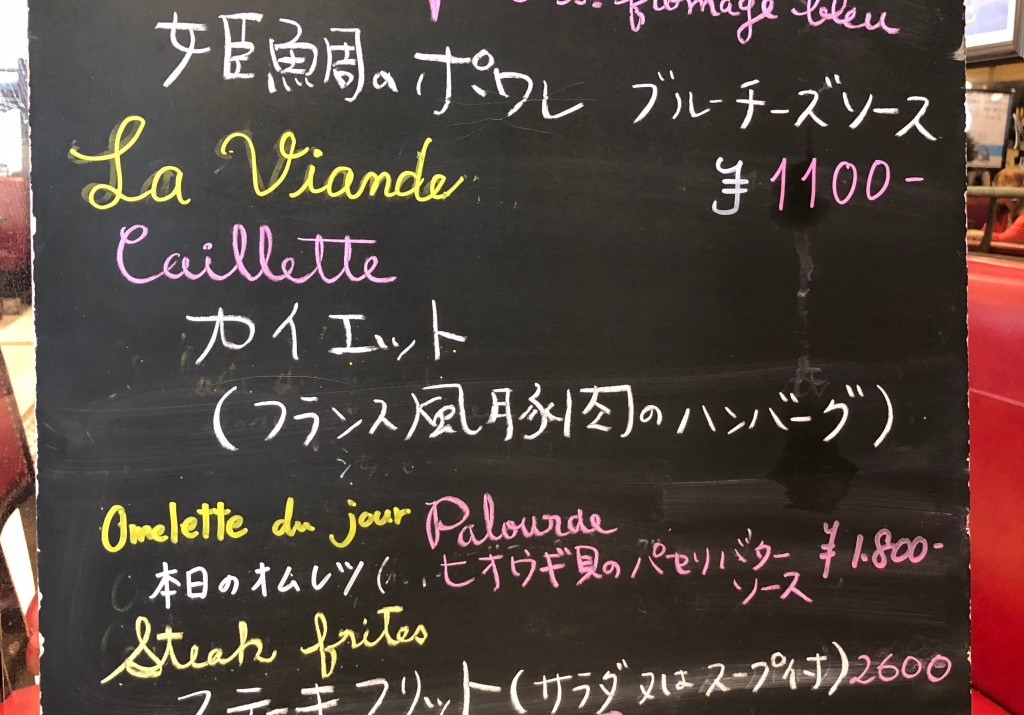 fromage bleu
姫鯛のポワレ ブルーチーズソース
La Viande ¥1100-
Caillette
カイエット
(フランス風豚肉のハンバーグ)
Omelette du jour Palourde
本日のオムレツ( ヒオウギ貝のパセリバターソース ¥1.800-
Steak frites
ステーキフリット(サラダ又はスープ付)2600